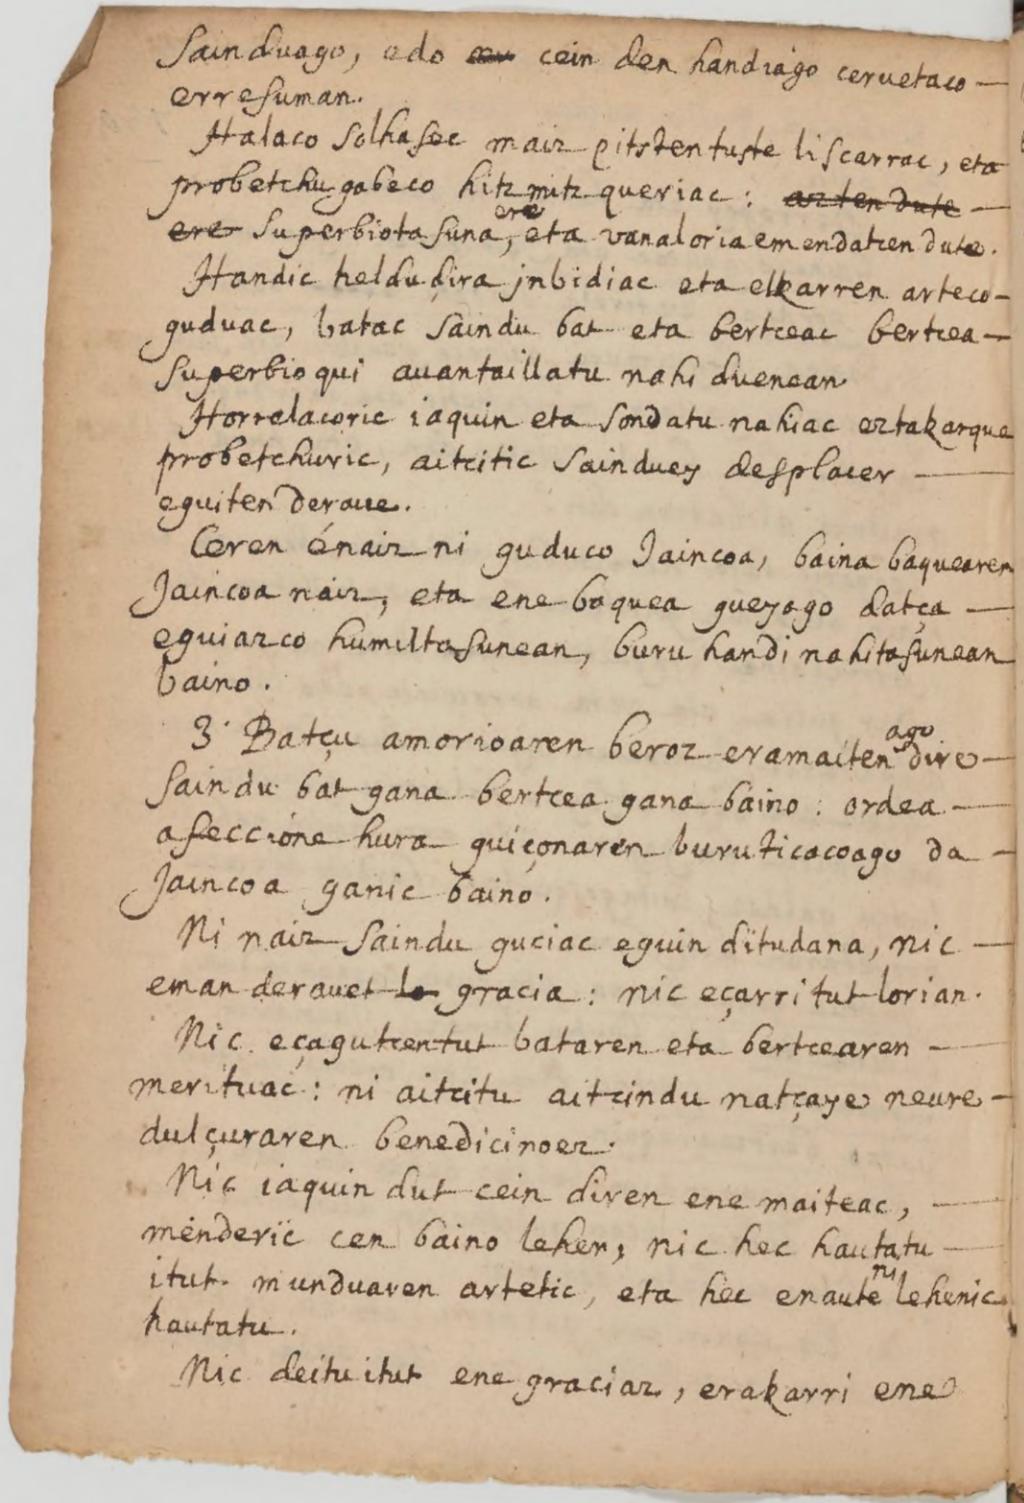 Sainduago, edo cein den handiago ceruetaco
erresuman.
Halaco solhasec maiz pitzten tuzte liscarrac, eta
probetchu gabeco hitz mitz queriac: azten dute
ere superbiotasuna, ere eta vanaloria emendatcen dute.
Handic heldu dira jnbidiac eta elkarren arteco
guduac, batac saindu bat eta bertceac bertcea
superbioqui auantaillatu nahi duenean
Horrelacoric iaquin eta sondatu nahiac eztakarque
probetchuric, aitcitic sainduey desplacer
eguiten deraue.
Ceren énaiz ni guduco Jaincoa, baina baquearen
Jaincoa naiz, eta ene baquea gueyago datça
eguiazco humiltasunean, buru handi nahitasunean
baino.
3. Batçu amorioaren beroz eramaiten ago dire
saindu bat gana bertcea gana baino: ordea
afeccióne hura guiçonaren buruticacoago da
Jaincoa ganic baino.
Ni naiz saindu guciac eguin ditudana, nic
eman derauet gracia: nic eçarri tut lorian.
Nic eçagutcen tut bataren eta bertcearen
merituac: ni aitcitu aitcindu natçaye neure
dulçuraren benedicinoez.
Nic iaquin dut cein diren ene maiteac,
menderic cen baino lehen, nic hec hautatu
itut munduaren artetic, eta hec enaute ni lehenic
hautatu.
Nic deitu itut ene graciaz, erakarri ene